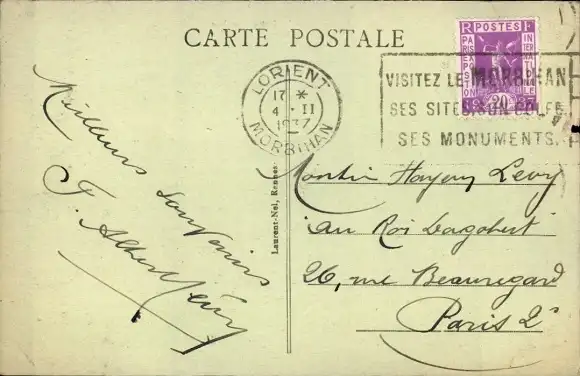 CARTE POSTALE
R POSTES F
PARIS EXPOSITION INTERNATIONALE
20
LORIENT
17 *
4 - II
1937
MORBIHAN
VISITEZ LE MORBIHAN
SES SITES, SON GOLFE,
SES MONUMENTS.
Meilleurs souvenirs
F. Albert
Laurent-Nel, Rennes
Levy
au Roi Dagobert
26, rue Beauregard
Paris 2e